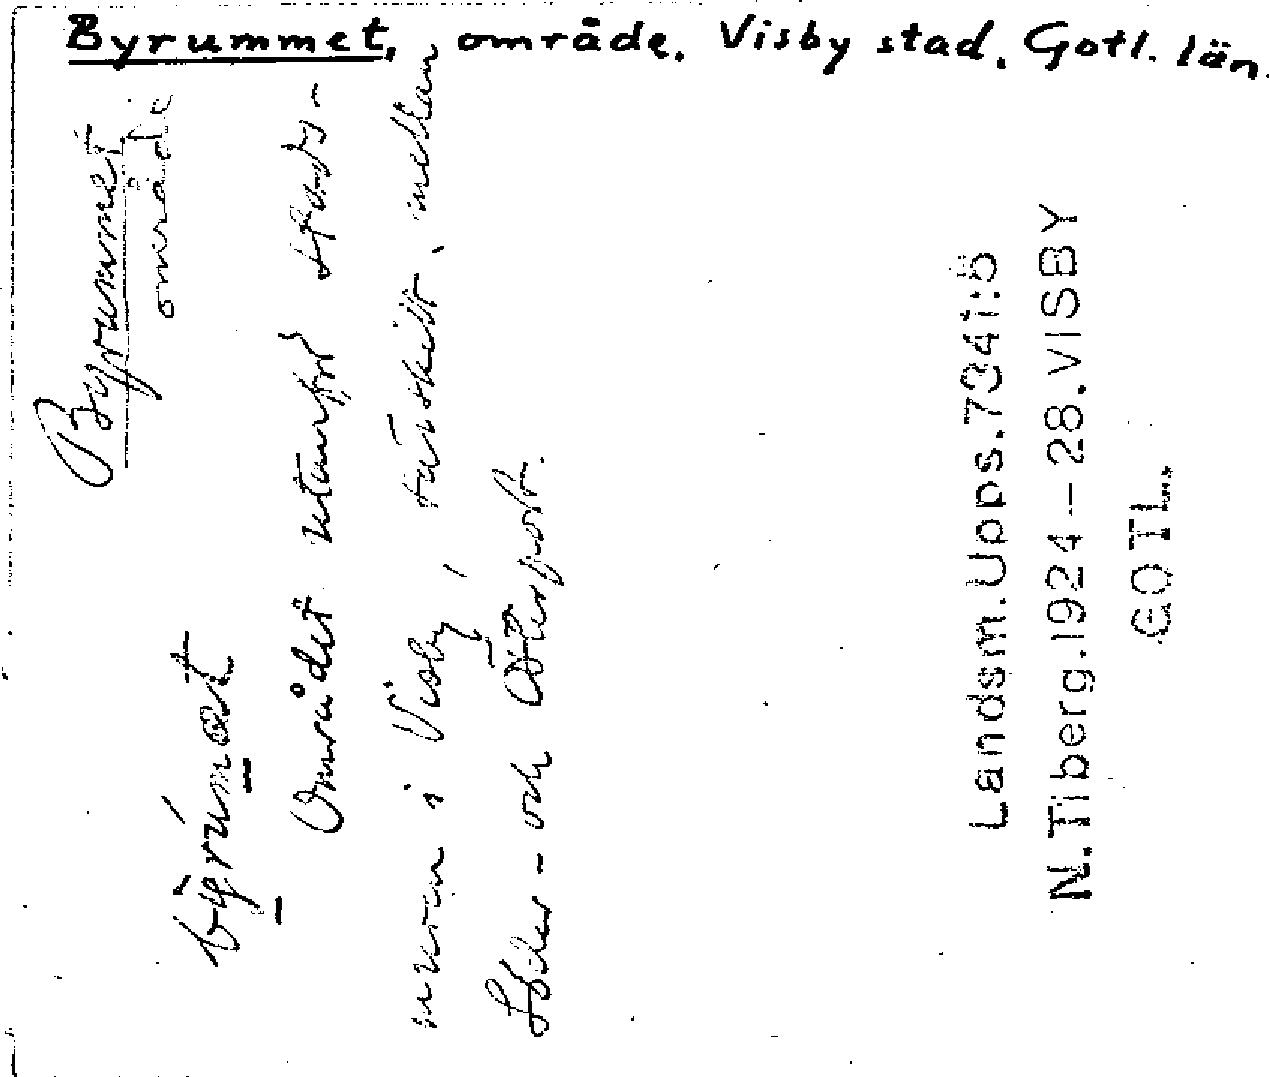 Byrummet, område, Visby stad, Gotl. län.
Byrummet
område
Området utanför stads-
muren i Visby, särskilt, mellan
Söder- och Österport.
Landsm. Upps. 734i:5
N. Tiberg. 1924-28. VISBY
GOTL.